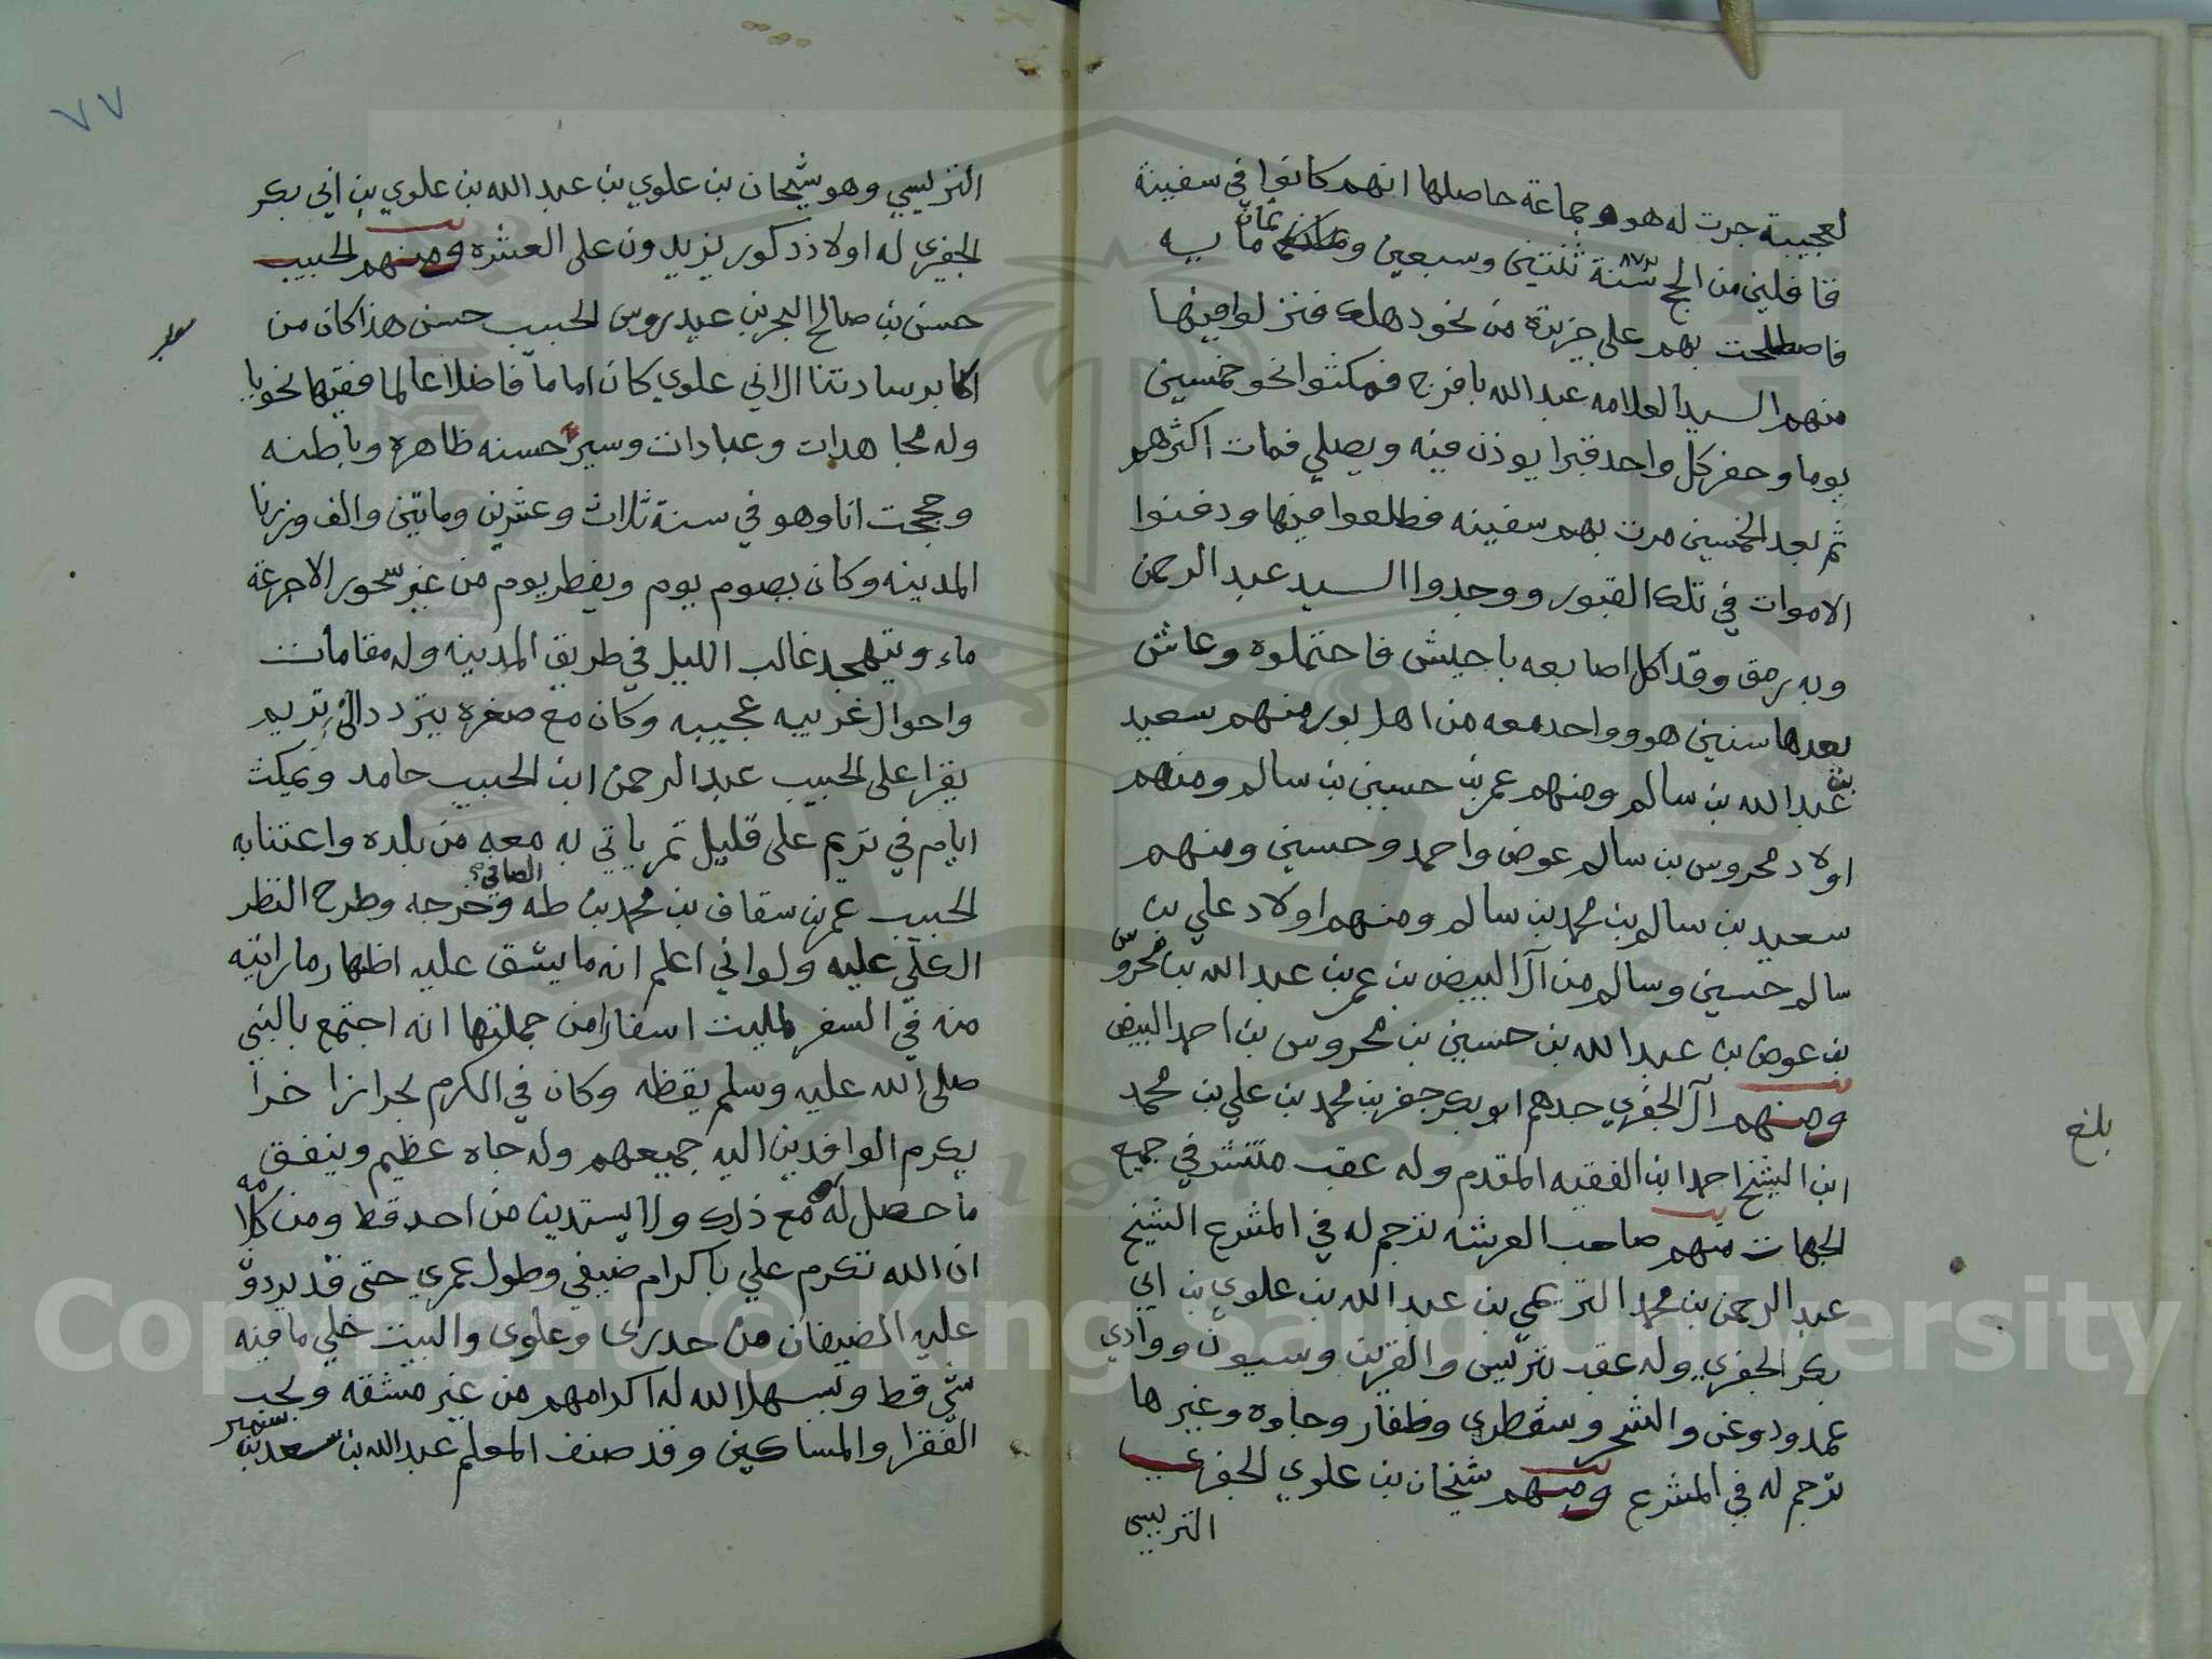 لعجيبة جرت له هو وجماعة حاصلها انهم كانوا في سفينة
قافلين من الحج سنة ٨٧٢ ثنتين وسبعين وثمان ماييه
فاصطلحت بهم على جزيرة من نحو دهلك فنزلوا فيها
منهم السيد العلامه عبد الله بافرج فمكثوا نحو خمسين
يوما وحفر كل واحد قبرا يوذن فيه ويصلي فمات اكثرهم
ثم بعد الخمسين مرت بهم سفينه فطلعوا فيها ودفنوا
الاموات في تلك القبور ووجدوا السيد عبد الرحمن
وبه رمق وقد اكل اصابعه باجيش فاحتملوه وعاش
بعدها سنين هو وواحد معه من اهل بور منهم سعيد
بن عبد الله بن سالم ومنهم عمر بن حسين بن سالم ومنهم
اولاد محروس بن سالم عوض واحمد وحسين ومنهم
سعيد بن سالم بن محمد بن سالم ومنهم اولاد علي بن
سالم حسين وسالم من آل البيض بن عمر بن عبد الله بن محروس
بن عوض بن عبد الله بن حسين بن محروس بن احمد البيض
ومنهم آل الجفري جدهم ابو بكر جفر بن محمد بن علي بن محمد
ابن الشيخ احمد ابن الفقيه المقدم وله عقب منتشر في جميع
الجهات منهم صاحب العرشه ترجم له في المشرع الشيخ
عبد الرحمن بن محمد التريمي بن عبد الله بن علوي بن ابي
بكر الجفري وله عقب بتريس والقرين وسيون ووادي
عمد ودوعن والشحر وسقطرى وظفار وجاوه وغيرها
ترجم له في المشرع ومنهم شيخان بن علوي الجفري
التريسي
بلغ
٧٧
التريسي وهو شيخان بن علوي بن عبد الله بن علوي بن ابي بكر
الجفري له اولاد ذكور يزيدون على العشره ومنهم الحبيب
حسن بن صالح البحر بن عيدروس الحبيب حسن هذا كان من
اكابر سادتنا ال ابي علوي كان اماما فاضلا عالما فقيها نحويا
وله مجاهدات وعبادات وسير حسنه ظاهره وباطنه
وحججت انا وهو في سنة ثلاث وعشرين ومايتين والف وزرنا
المدينه وكان يصوم يوم ويفطر يوم من غير سحور الا جرعة
ماء ويتهجد غالب الليل في طريق المدينه وله مقامات
واحوال غريبه عجيبه وكان مع صغره يتردد الى تريم
يقرا على الحبيب عبد الرحمن ابن الحبيب حامد ويمكث
ايام في تريم على قليل تمر ياتي به معه من بلده واعتنا به
الحبيب عمر بن سقاف بن محمد بن طه الصافي وخرجه وطرح النظر
العلي عليه ولو اني اعلم انه ما يشق عليه اظهار ما رايته
منه في السفر لمليت اسفارا من جملتها انه اجتمع بالنبي
صلى الله عليه وسلم يقظه وكان في الكرم بحرا زاخرا
يكرم الوافدين اليه جميعهم وله جاه عظيم وينفق
ما حصل له مع ذلك ولا يستدين من احد قط ومن كلامه
ان الله تكرم علي باكرام ضيفي وطول عمري حتى قد يردو
عليه الضيفان من حدرى وعلوى والبيت خلي ما فيه
شي قط ويسهل الله له اكرامهم من غير مشقه ويحب
الفقرا والمساكين وقد صنف المعلم عبد الله بن سعد بن سمير